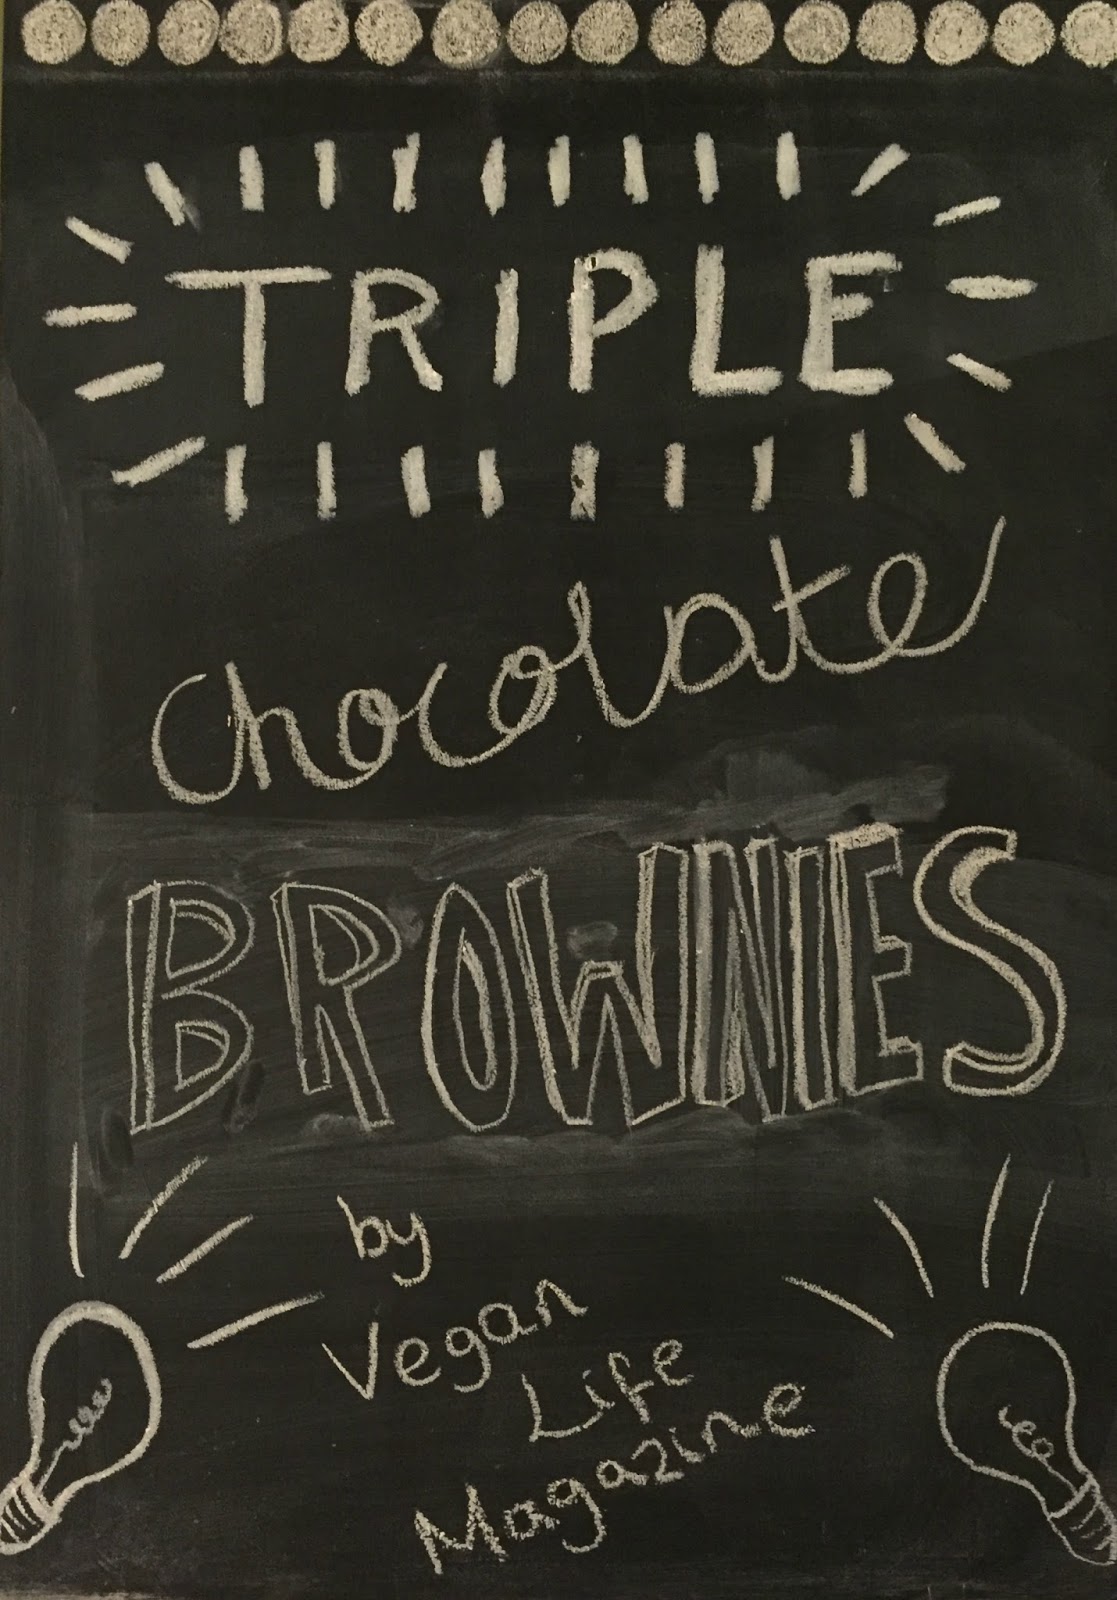 TRIPLE
chocolate
BROWNIES
by
Vegan
Life
Magazine